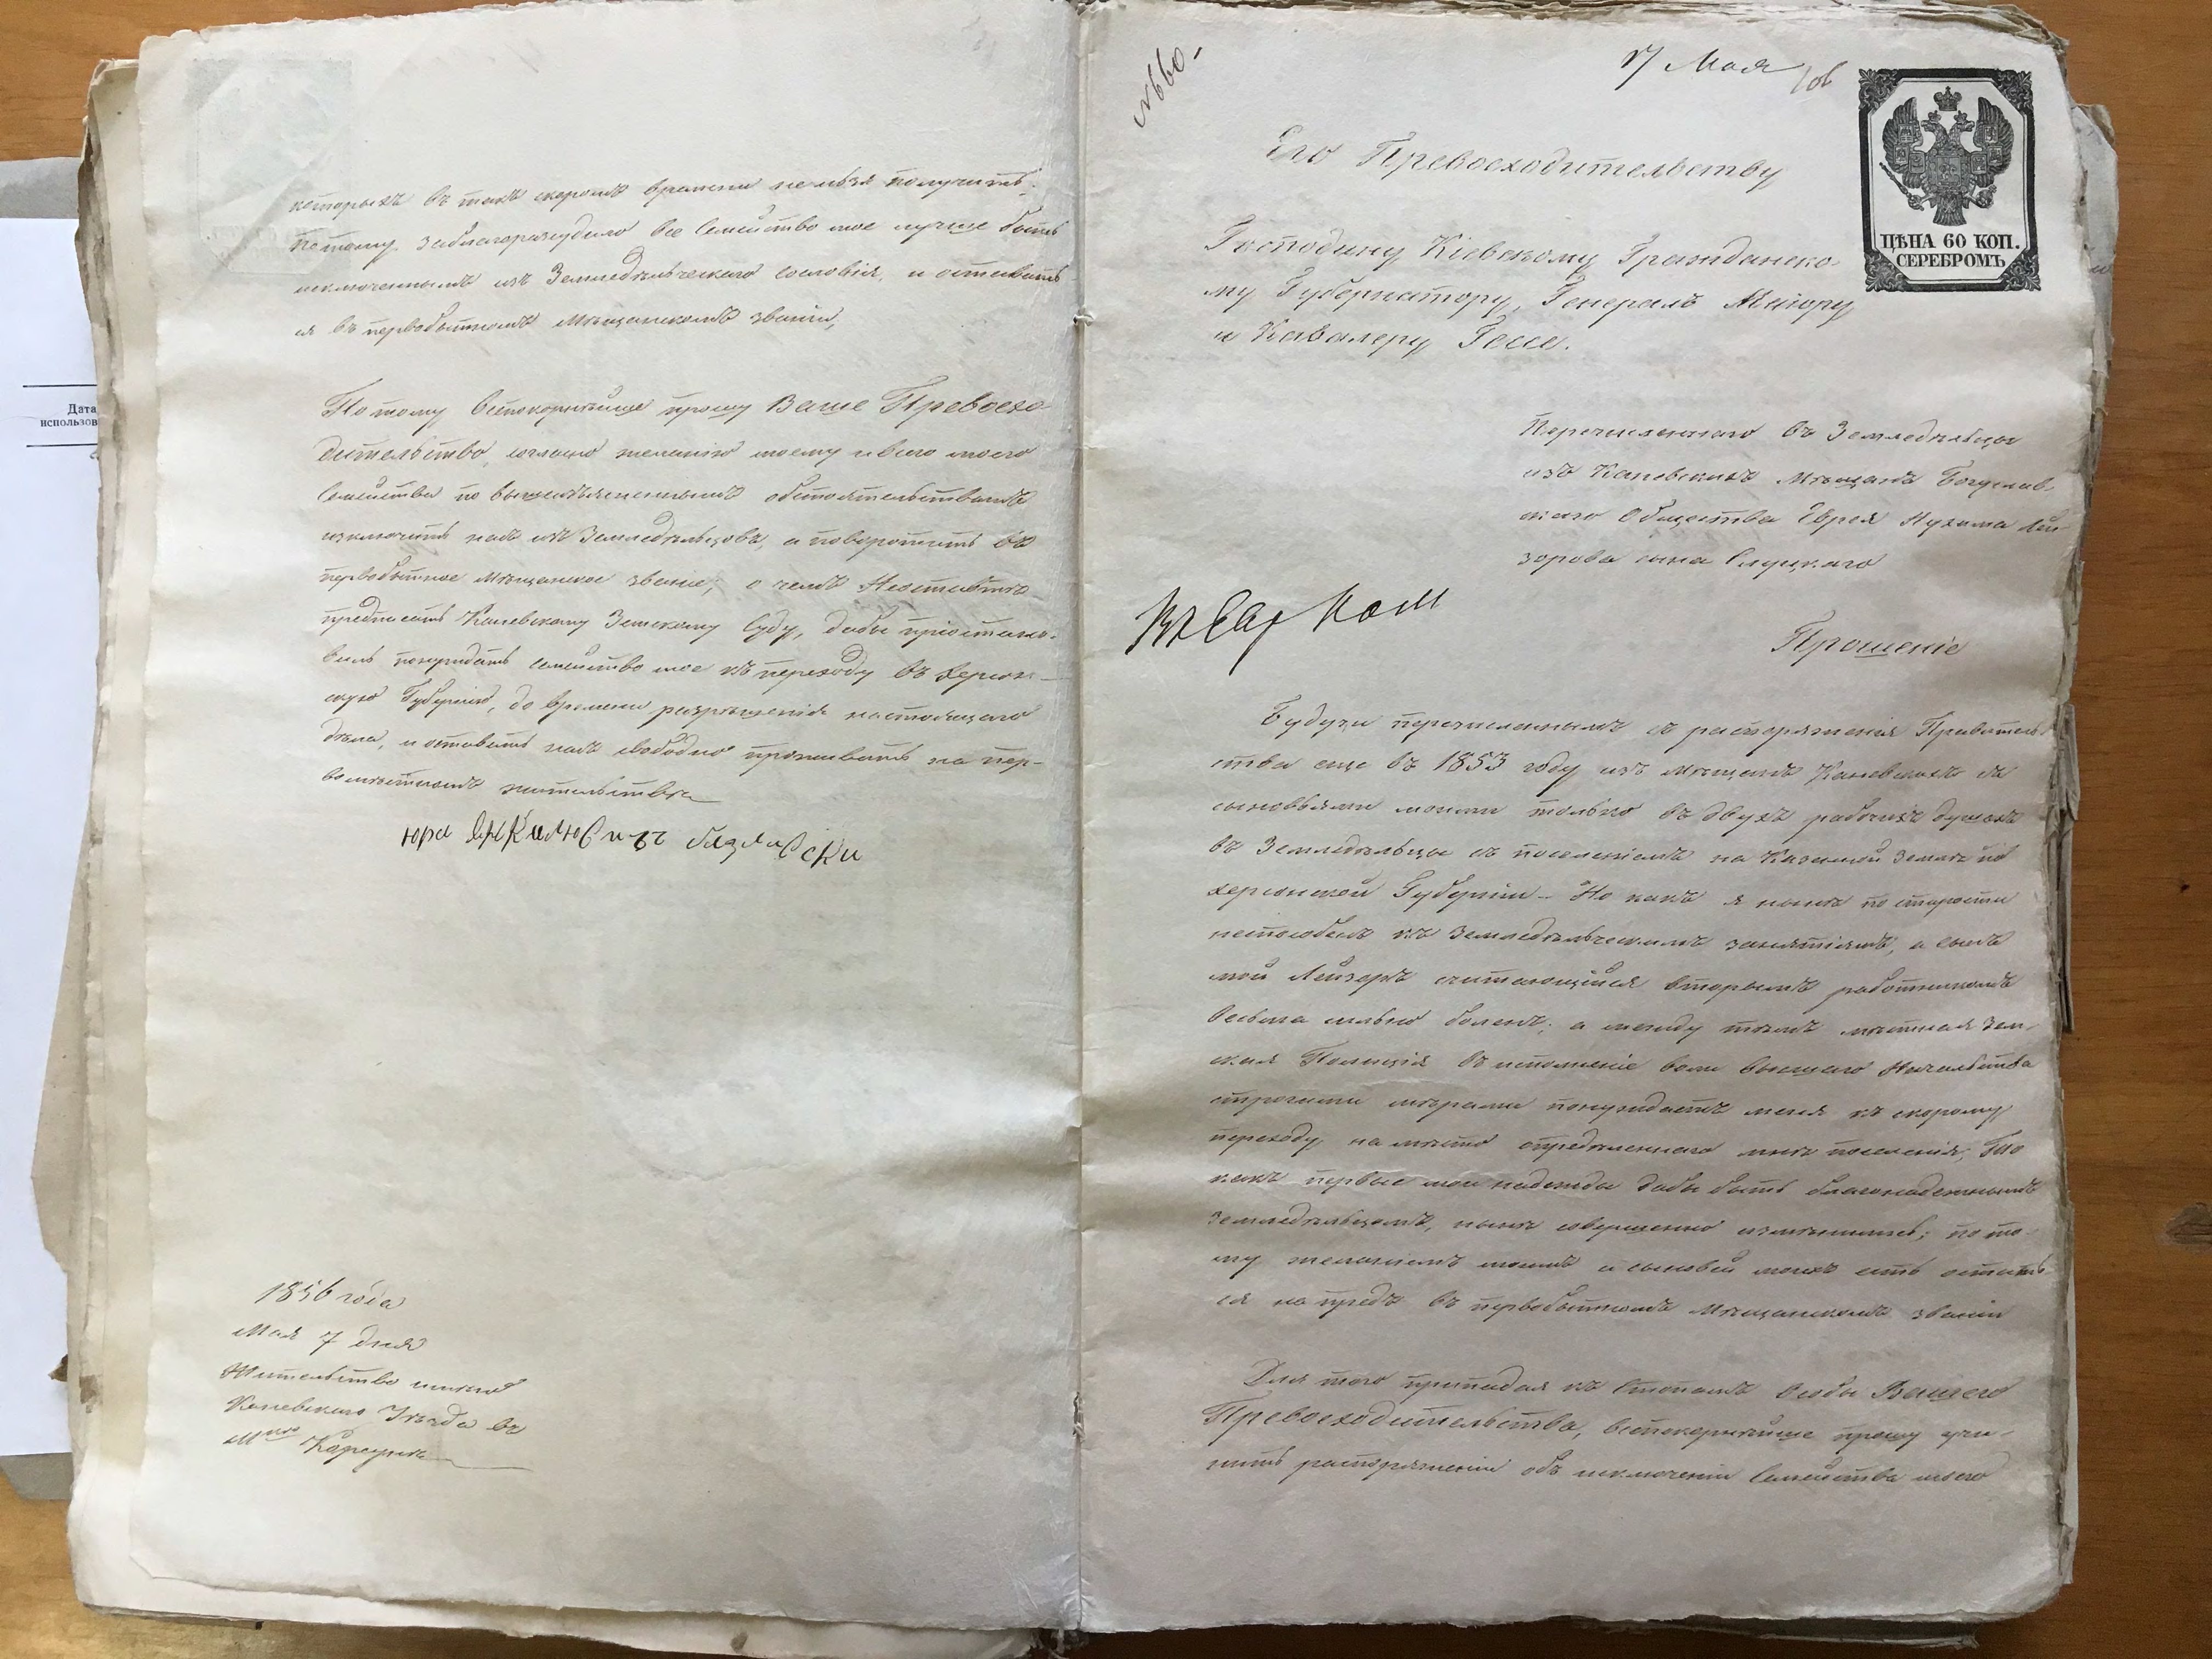 которыхъ въ такъ скоромъ времени нельзя получить.
Потому заблагоразсудило все Семейство мое лучше быть
исключеннымъ изъ Земледѣльческаго сословія, и оставать
ся въ первобытномъ Мѣщанскомъ званіи,
По тому всепокорнѣйше прошу Ваше Превосхо-
дительство, согласно желанію моему и всего моего
Семейства по вышеизъясненнымъ обстоятельствамъ
исключить насъ изъ Земледѣльцовъ, а поворотить въ
первобытное Мѣщанское званіе; о чемъ
предписать Каневскому Земскому Суду, дабы пріостано-
вилъ понуждать семейство мое къ переходу въ Херсон-
скую Губернію, до времени разрѣшенія настоящаго
дѣла, и оставить насъ свободно проживать на пер-
вомѣстномъ жительствѣ
1856 года
Мая 7 дня
Жительство имѣю
Каневскаго Уѣзда въ
Мкѣ Корсунѣ
№660.
17 Мая
ЦѢНА 60 КОП.
СЕРЕБРОМЪ
Его Превосходительству
Господину Кіевскому Гражданско-
му Губернатору, Генералъ Маіору
и Кавалеру Гессе.
Перечисленнаго въ Земледѣльцы
изъ Каневскихъ Мѣщанъ Богуслав-
скаго Общества Еврея Нухима Лей-
зорова сына Слуцкаго
Прошеніе
Будучи перечисленнымъ съ распоряженія Правитель
ства еще въ 1853 году изъ Мѣщанъ Каневскихъ съ
сыновьями моими только въ двухъ рабочихъ душахъ
въ Земледѣльцы съ поселеніемъ на Казенной Землѣ по
Херсонской Губерніи – Но какъ я нынѣ по старости
неспособенъ къ Земледѣльческимъ занятіямъ, а сынъ
мой Лейзеръ считающійся вторымъ работникомъ
весьма сильно боленъ; а между тѣмъ мѣстная Зем-
ская Полиція въ исполненіе воли высшаго Начальства
строгими мѣрами понуждаетъ меня къ скорому
переходу на мѣсто опредѣленнаго мнѣ поселенія; Но
какъ первые мои надежда дабы быть благонадежнымъ
земледѣльцомъ, нынѣ совершенно измѣнились; по то-
му желаніемъ моимъ и сыновей моихъ есть остать
ся на предъ въ первобытномъ Мѣщанскомъ званіи
Для того припадая къ Стопамъ Особы Вашего
Превосходительства, всепокорнѣйше прошу учи-
нить распоряженіи объ исключеніи Семейства моего